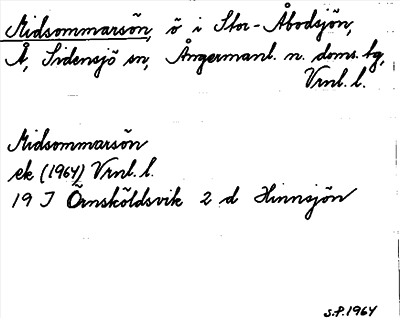 Midsommarsön, ö i Stor-Åbodsjön,
Å, Sidensjö sn, Ångermanl. n. doms. tg,
Vrnl. l.
Midsommarsön
ek (1964) Vrnl. l.
19 J Örnsköldsvik 2 d Hinnsjön
S.P. 1964